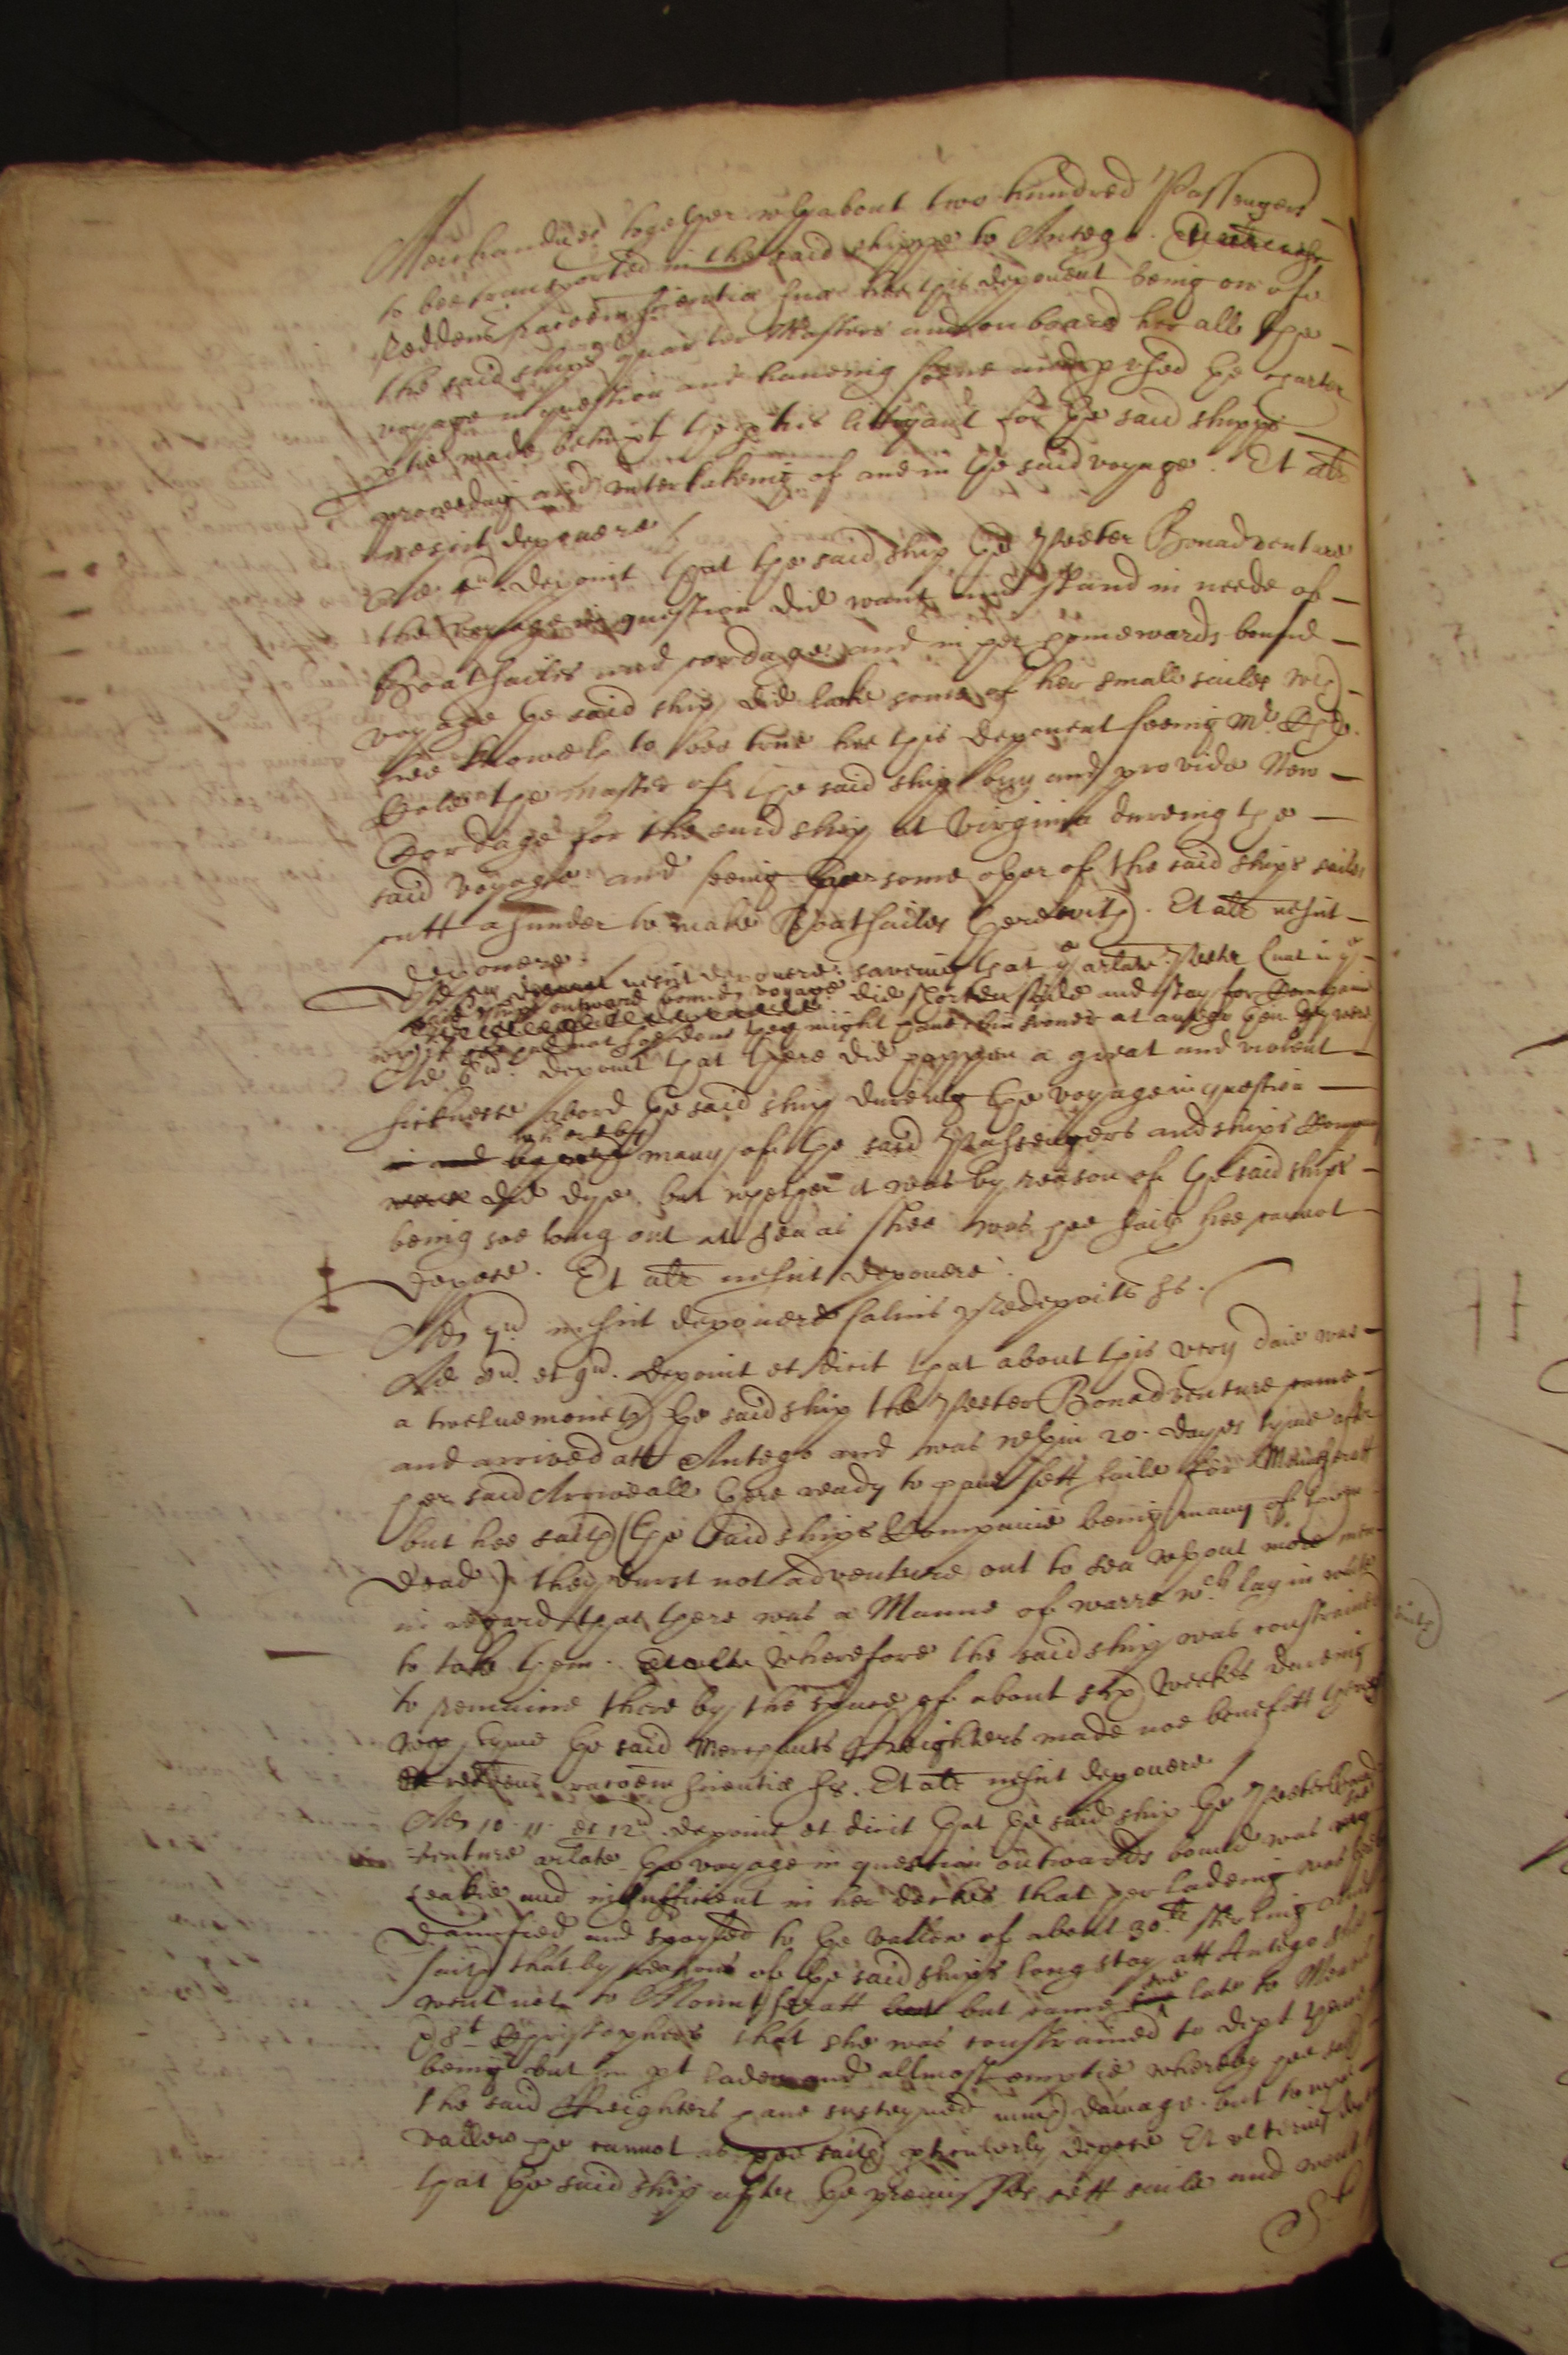 Merchandizes together wth about two hundred Passengers
to bee transported in the said shippe to Antego.
Reddens racõem scientiæ suæ hee this deponent being one of
the said ships quarter Masters and on board her all the
voyage in question and haveing seene and p rused the charter
p tie made betwixt the p ties litigant for the said shipps
proceeding and undertakeing of and in the said voyage. Et alr
nescit deponere
Ad 4um deponit that the said ship the Peeter Bonadventure
the voyage in question did want and stand in neede of
Boatsailes and cordage and in her homewards bound
voyage the said ship did lack some of her small sailes wch
hee knoweth to bee true hee this deponent seeing Mr.
Cole the Master of the said ship buy and provide New
Cordage for the said ship at Virginia dureing the
said voyage and seeing some other of the said ships sailes
cutt asunder to make Boatsailes therewith. Et alr nescit
deponere.
nescit deponere. saveing that ye arlate Peeter
said ships outward bound voyage did shorten saile and stay for
had not soe done they might have bin sooner at Antego then they were
Ad 6um deponit that there did happen a great and violent
sicknesse abord the said ship dureing the voyage in question
whereby many of the said Passengers and ships Company
did dye, but whether it was by reason of the said ships
being soe long out at sea as shee was hee saith hee cannot
depose. Et alr nescit deponere.
Ad 7um nescit deponere salvis prædepoitis ss.
Ad 8um et 9um deponit et dicit that about this very daie was
a twelvemoneth the said ship the Peeter Bonadventure came
and arrived att Antego and was wthin 20 dayes tyme after
her said Arriveall there ready to have sett saile for Mountseratt
but hee saith (the said ships Companie being many of them
dead) they durst not adventure out to sea wthout more men
in regard that there was a Manne of warre wch lay in waite
to take them. Wherefore the said ship was constrained
to remaine there by the space of about six weekes dureing
wch tyme the said Merchants Freighters made noe benefitt thereof
reddens racõem scientiæ ss. Et alr nescit deponere
Ad 10. 11. et 12um deponit et dicit that the said ship the Peeter Bonad
venture arlate the voyage in question outwards bound was soe
leakie and insufficient in her deckes that her ladeing was
damnified and spoyled to the vallew of about 30li sterling and
saith that by reason of the said ships long stay att Antego she
went not to Mountseratt but came soe late to
St Christophers that she was constrained to dept thence
being but in pt laden and allmost emptie whereby hee saith
the said Freighters have susteyned much damage. but to what
vallew he cannot as hee saith p ticulerly depose Et ulterius
that the said ship after the premisses sett saile and went
St